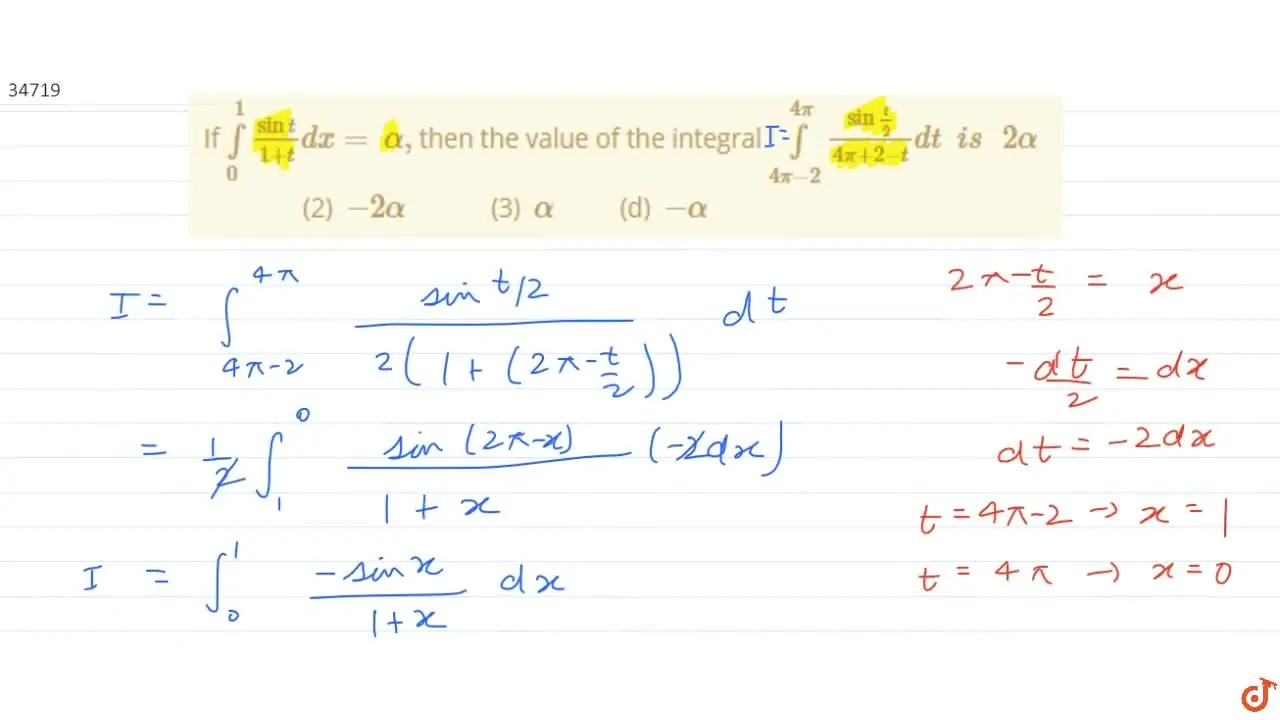 34719
If ∫₀¹ sin t/1+t dx = α, then the value of the integral I= ∫_{4π−2}^{4π} sin t/2 / 4π+2−t dt is 2α
(2) −2α (3) α (d) −α
I = ∫_{4π-2}^{4π} sin t/2 / 2(1+(2π-t/2)) dt
= 1/2 ∫₁⁰ sin(2π-x) / 1+x (-2dx)
I = ∫₀¹ -sinx / 1+x dx
2π-t/2 = x
-dt/2 = dx
dt = -2dx
t = 4π-2 → x = 1
t = 4π → x = 0